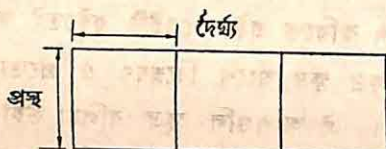 দৈর্ঘ্য
প্রস্থ